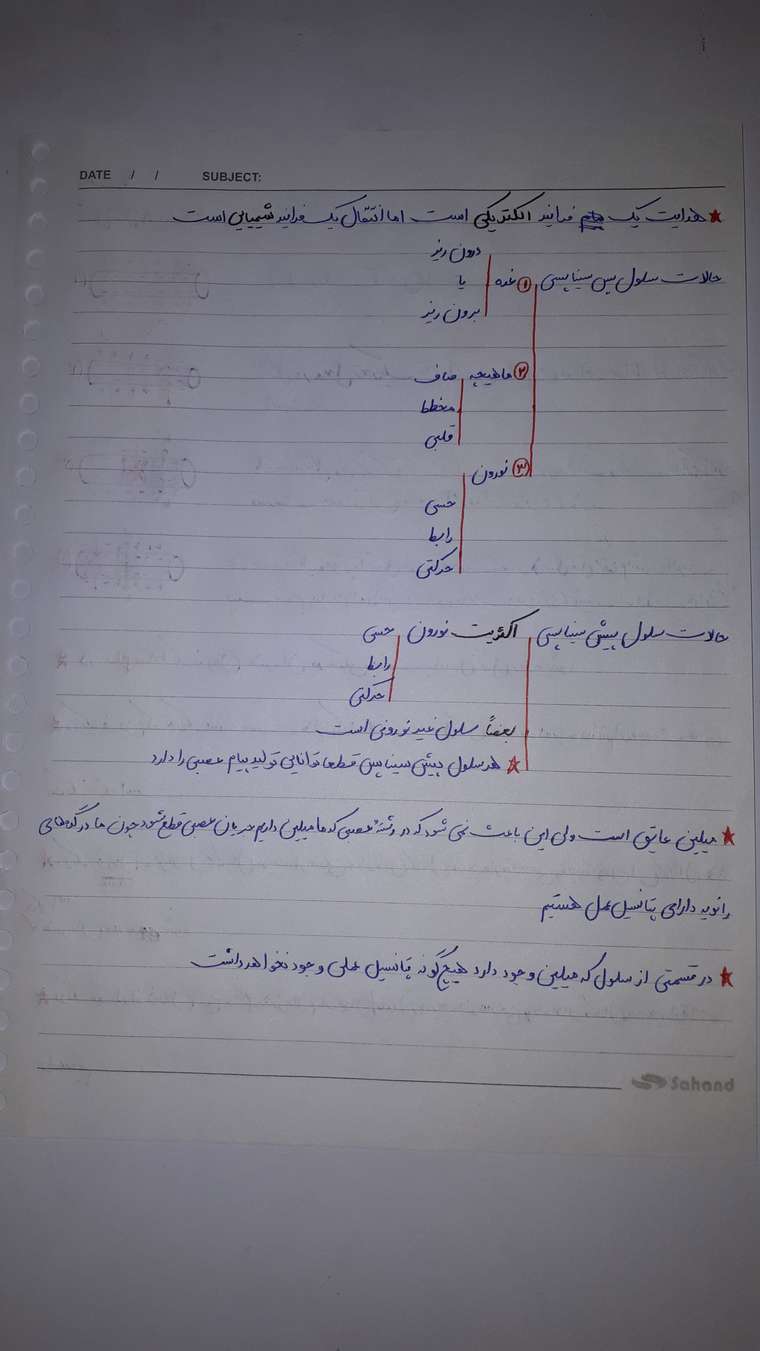 DATE / / SUBJECT:
★ هدایت یک فرایند الکتریکی است اما انتقال یک فرایند شیمیایی است
درون ریز
حالات سلول پس سیناپسی ① غده یا
برون ریز
② ماهیچه صاف
مخطط
قلبی
③ نورون
حسی
رابط
حرکتی
حالات سلول پیش سیناپسی اکثریت نورون حسی
رابط
حرکتی
بعضاً سلول غیر نورونی است
★ هر سلول پیش سیناپسی قطعا توانایی تولید پیام عصبی را دارد
★ میلین عایق است ولی این باعث نمی شود که در رشته عصبی که ما میلین داریم جریان عصبی قطع شود چون ما در گره های
رانویه دارای پتانسیل عمل هستیم
★ در قسمتی از سلول که میلین وجود دارد هیچ گونه پتانسیل عملی وجود نخواهد داشت
Sahand